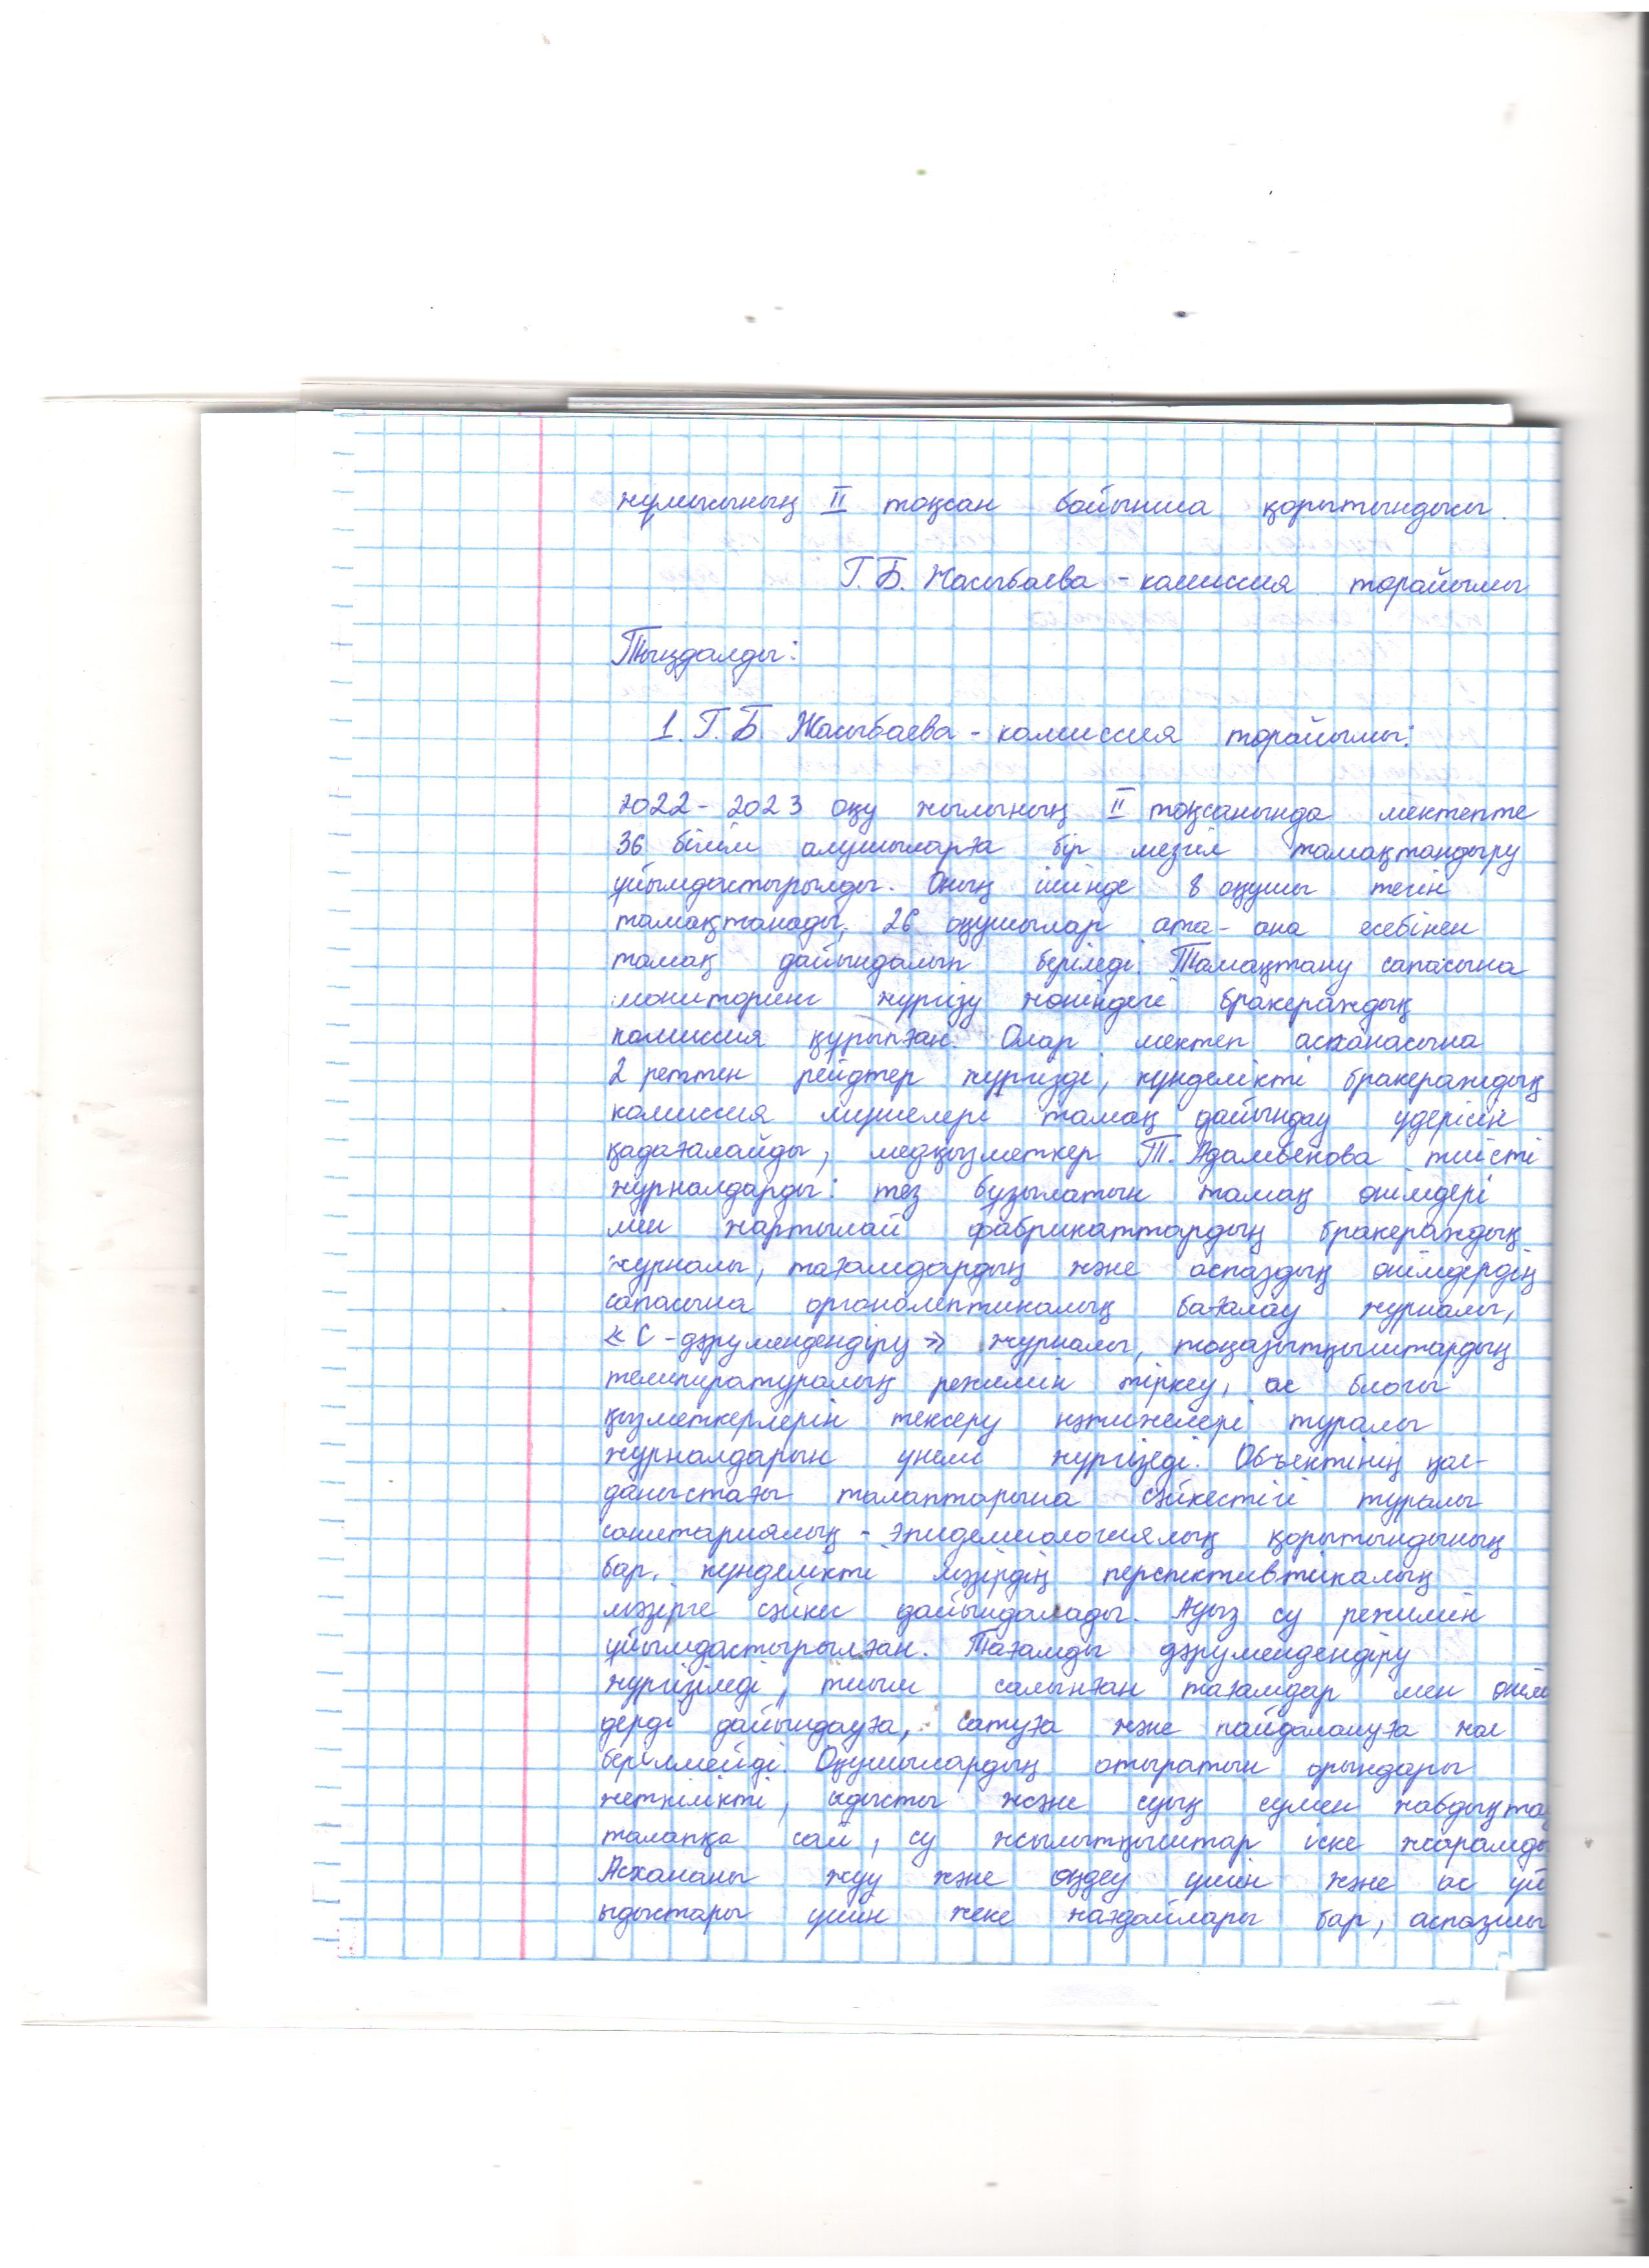 жұмысының II тоқсан бойынша қорытындысы.
Г.Б. Жасыбаева - комиссия төрайымы
Тыңдалды:
1. Г.Б. Жасыбаева - комиссия төрайымы:
2022-2023 оқу жылының II тоқсанында мектепте
36 білім алушыларға бір мезгіл тамақтандыру
ұйымдастырылды. Оның ішінде 8 оқушы тегін
тамақтанады, 26 оқушылар ата-ана есебінен
тамақ дайындалып беріледі. Тамақтану сапасына
мониторинг жүргізу жөніндегі бракераждық
комиссия құрылған. Олар мектеп асханасына
2 реттен рейдтер жүргізді, күнделікті бракераждық
комиссия мүшелері тамақ дайындау үдерісін
қадағалайды, медқызметкер Т. Адамбекова тиісті
журналдарды: тез бұзылатын тамақ өнімдері
мен жартылай фабрикаттардың бракераждық
журналы, тағамдардың және аспаздық өнімдердің
сапасына органолептикалық бағалау журналы,
«С-дәрумендендіру» журналы, тоңазытқыштардың
температуралық режимін тіркеу, ас блогы
қызметкерлерін тексеру нәтижелері туралы
журналдарын үнемі жүргізеді. Объектінің қол-
даныстағы талаптарына сәйкестігі туралы
санитариялық-эпидемиологиялық қорытындының
бар, күнделікті мәзірдің перспективтикалық
мәзірге сәйкес дайындалады. Ауыз су режимін
ұйымдастырылған. Тағамды дәрумендендіру
жүргізіледі, тиым салынған тағамдар мен өнім
дерді дайындауға, сатуға және пайдалануға жол
берілмейді. Оқушылардың отыратын орындары
жеткілікті, ыдысты және суық сумен жабдықта
талапқа сай, су жылытқыштар іске жарамды
Асхананы жуу және өңдеу үшін және ас үй
ыдыстары үшін жеке жағдайлары бар, аспазшы